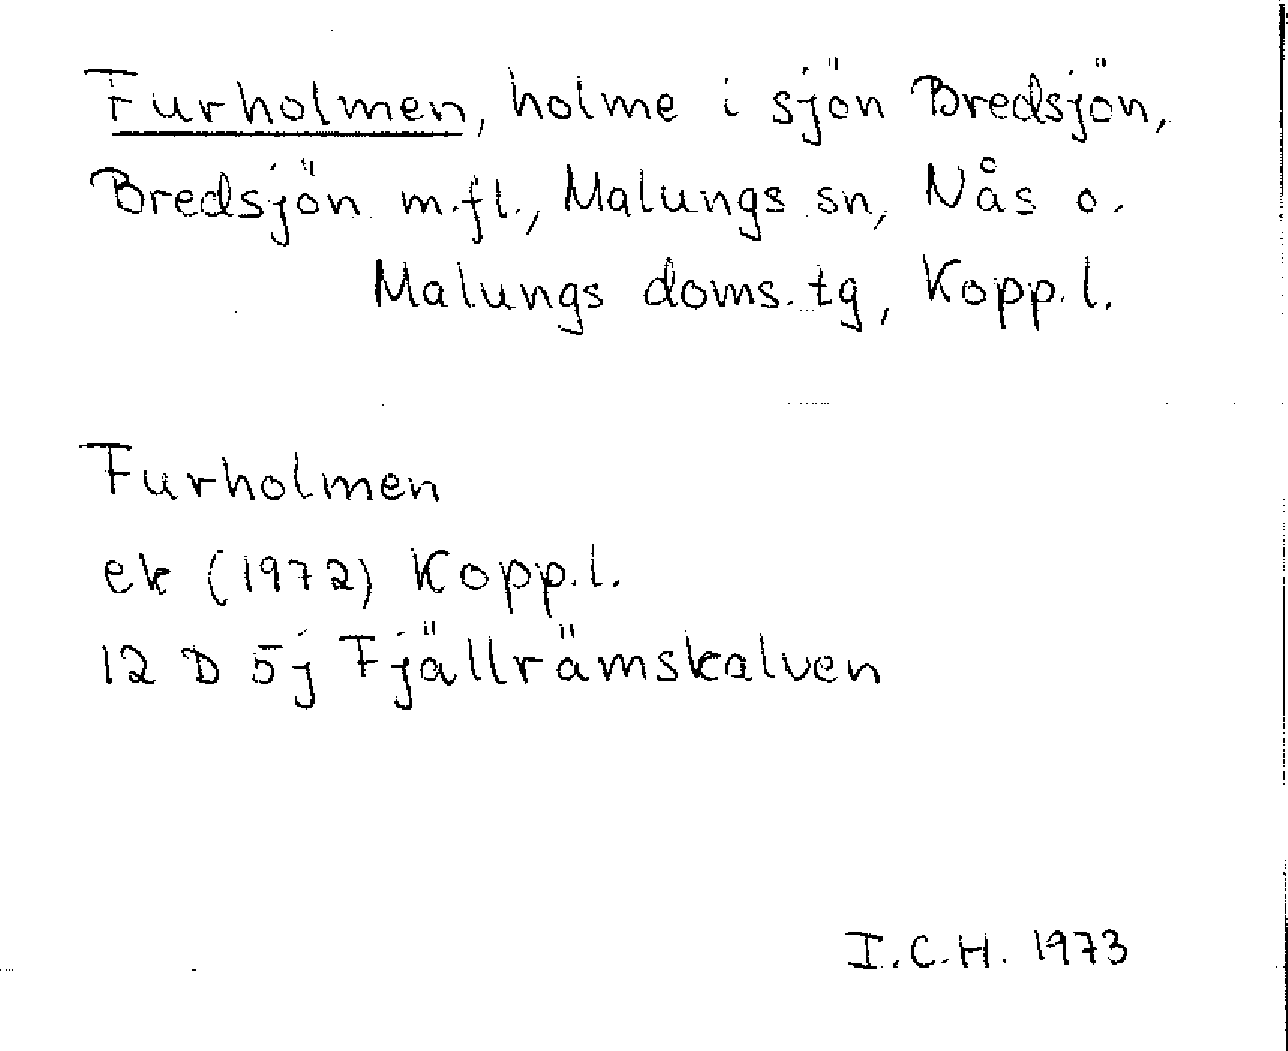 Furholmen, holme i sjön Bredsjön,
Bredsjön m.fl., Malungs sn, Nås o.
Malungs doms.tg, Kopp.l.
Furholmen
ek (1972) Kopp.l.
12 D 5j Fjällrämskalven
I.C.H. 1973